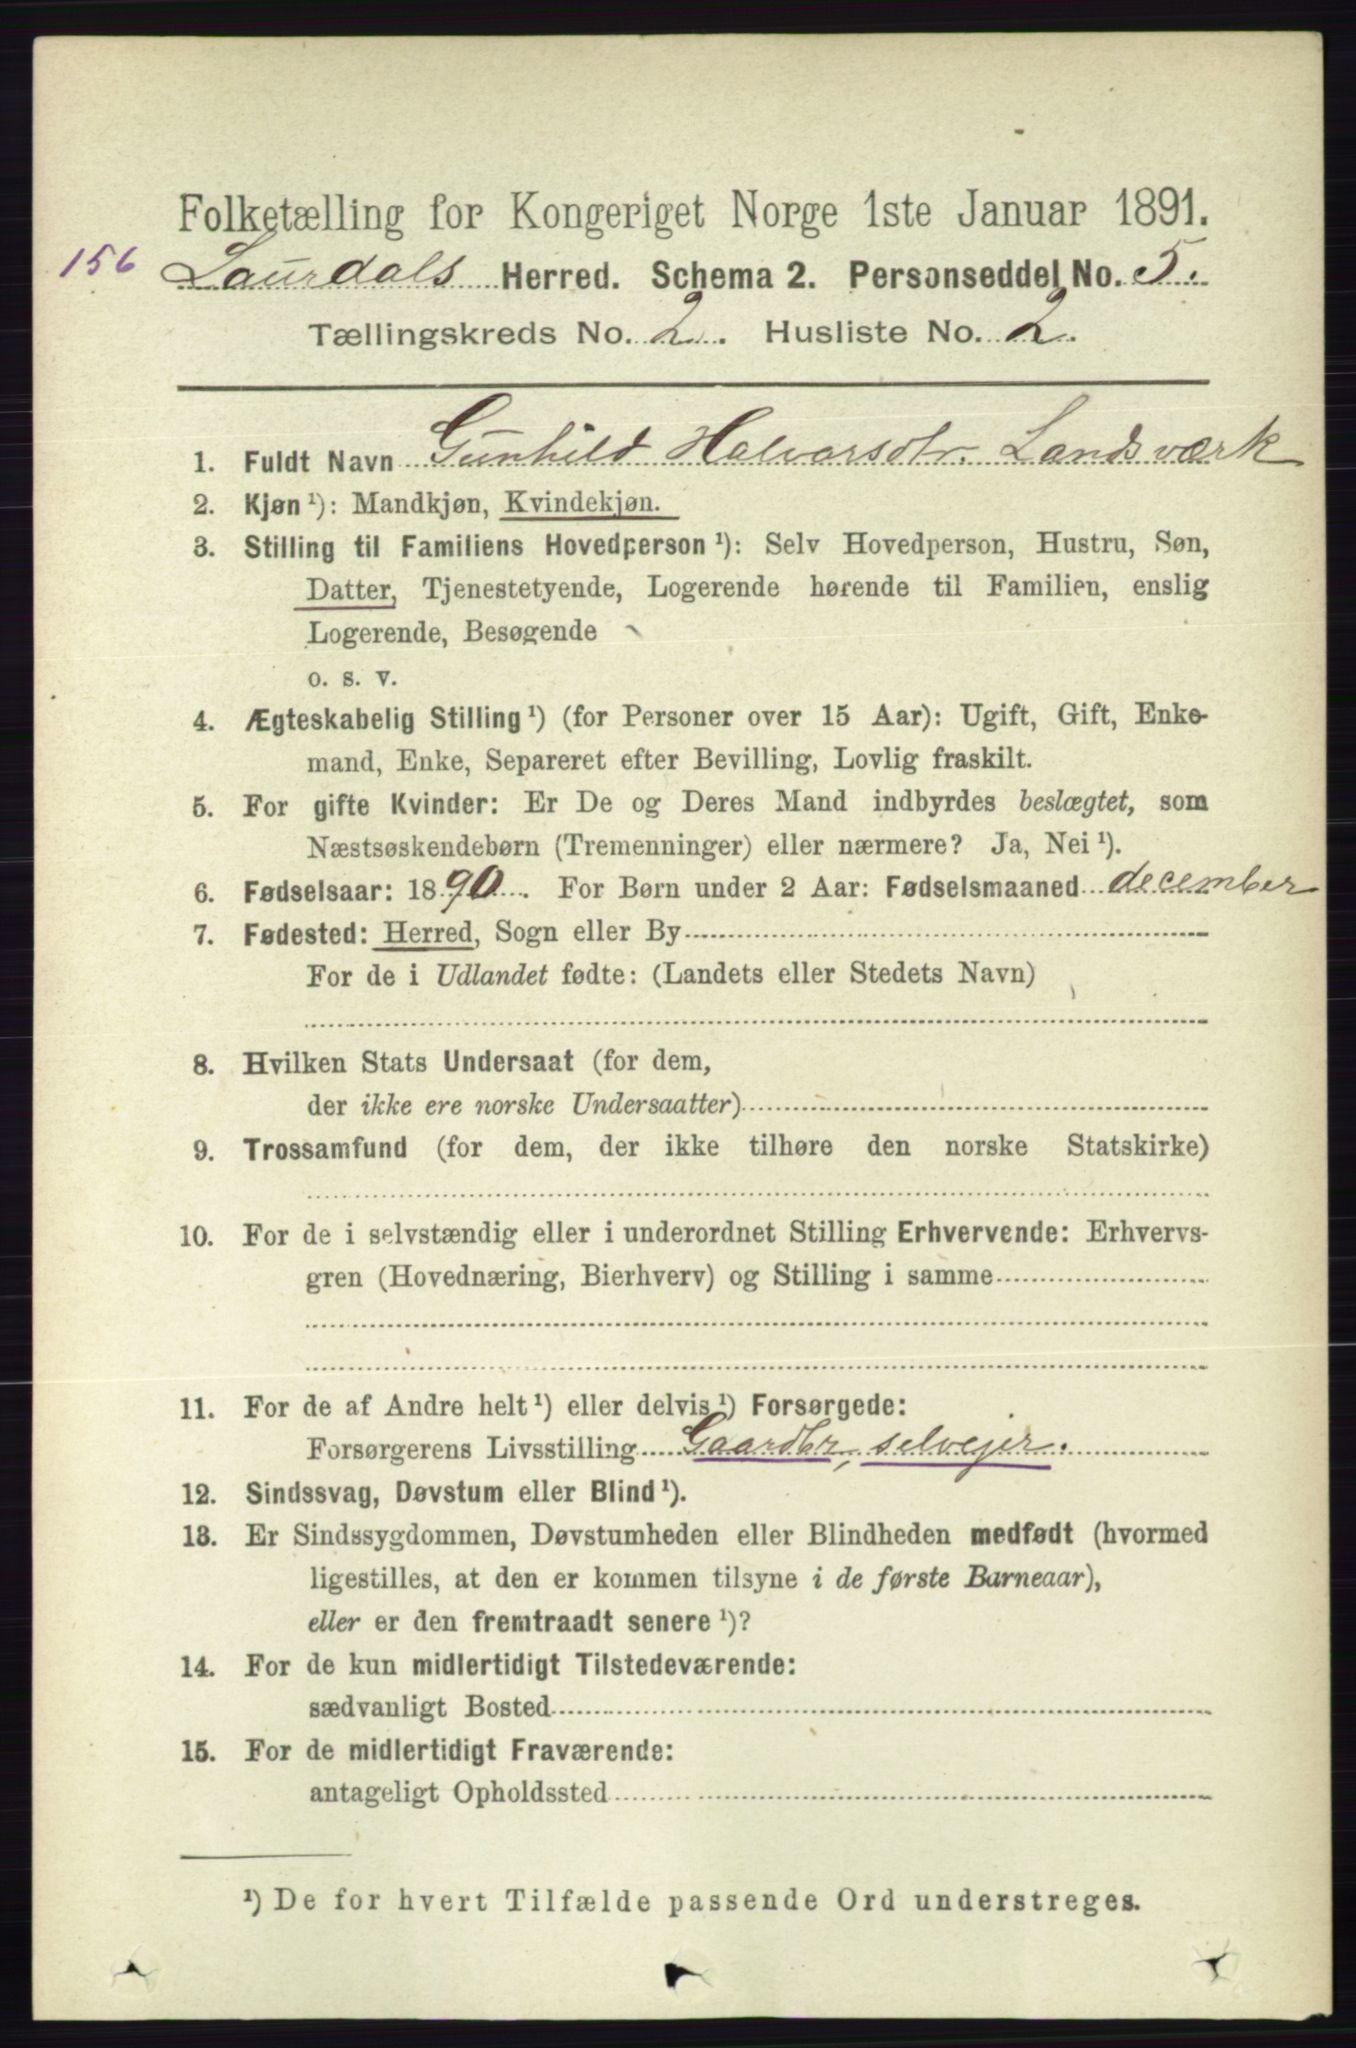 Folketælling for Kongeriget Norge 1ste Januar 1891.
156
Laurdals Herred. Schema 2. Personseddel No. 5.
Tællingskreds No. 2. Husliste No. 2.
1. Fuldt Navn Gunhild Halvorsdtr. Landsværk
2. Kjøn ¹): Mandkjøn, Kvindekjøn.
3. Stilling til Familiens Hovedperson ¹): Selv Hovedperson, Hustru, Søn,
Datter, Tjenestetyende, Logerende hørende til Familien, enslig
Logerende, Besøgende
o. s. v.
4. Ægteskabelig Stilling ¹) (for Personer over 15 Aar): Ugift, Gift, Enke-
mand, Enke, Separeret efter Bevilling, Lovlig fraskilt.
5. For gifte Kvinder: Er De og Deres Mand indbyrdes beslægtet, som
Næstsøskendebørn (Tremenninger) eller nærmere? Ja, Nei ¹).
6. Fødselsaar: 1890. For Børn under 2 Aar: Fødselsmaaned december
7. Fødested: Herred, Sogn eller By
For de i Udlandet fødte: (Landets eller Stedets Navn)
8. Hvilken Stats Undersaat (for dem,
der ikke ere norske Undersaatter)
9. Trossamfund (for dem, der ikke tilhøre den norske Statskirke)
10. For de i selvstændig eller i underordnet Stilling Erhvervende: Erhvervs-
gren (Hovednæring, Bierhverv) og Stilling i samme
11. For de af Andre helt ¹) eller delvis ¹) Forsørgede:
Forsørgerens Livsstilling Gaardbr, selvejer.
12. Sindssvag, Døvstum eller Blind ¹).
13. Er Sindssygdommen, Døvstumheden eller Blindheden medfødt (hvormed
ligestilles, at den er kommen tilsyne i de første Barneaar),
eller er den fremtraadt senere ¹)?
14. For de kun midlertidigt Tilstedeværende:
sædvanligt Bosted
15. For de midlertidigt Fraværende:
antageligt Opholdssted
¹) De for hvert Tilfælde passende Ord understreges.